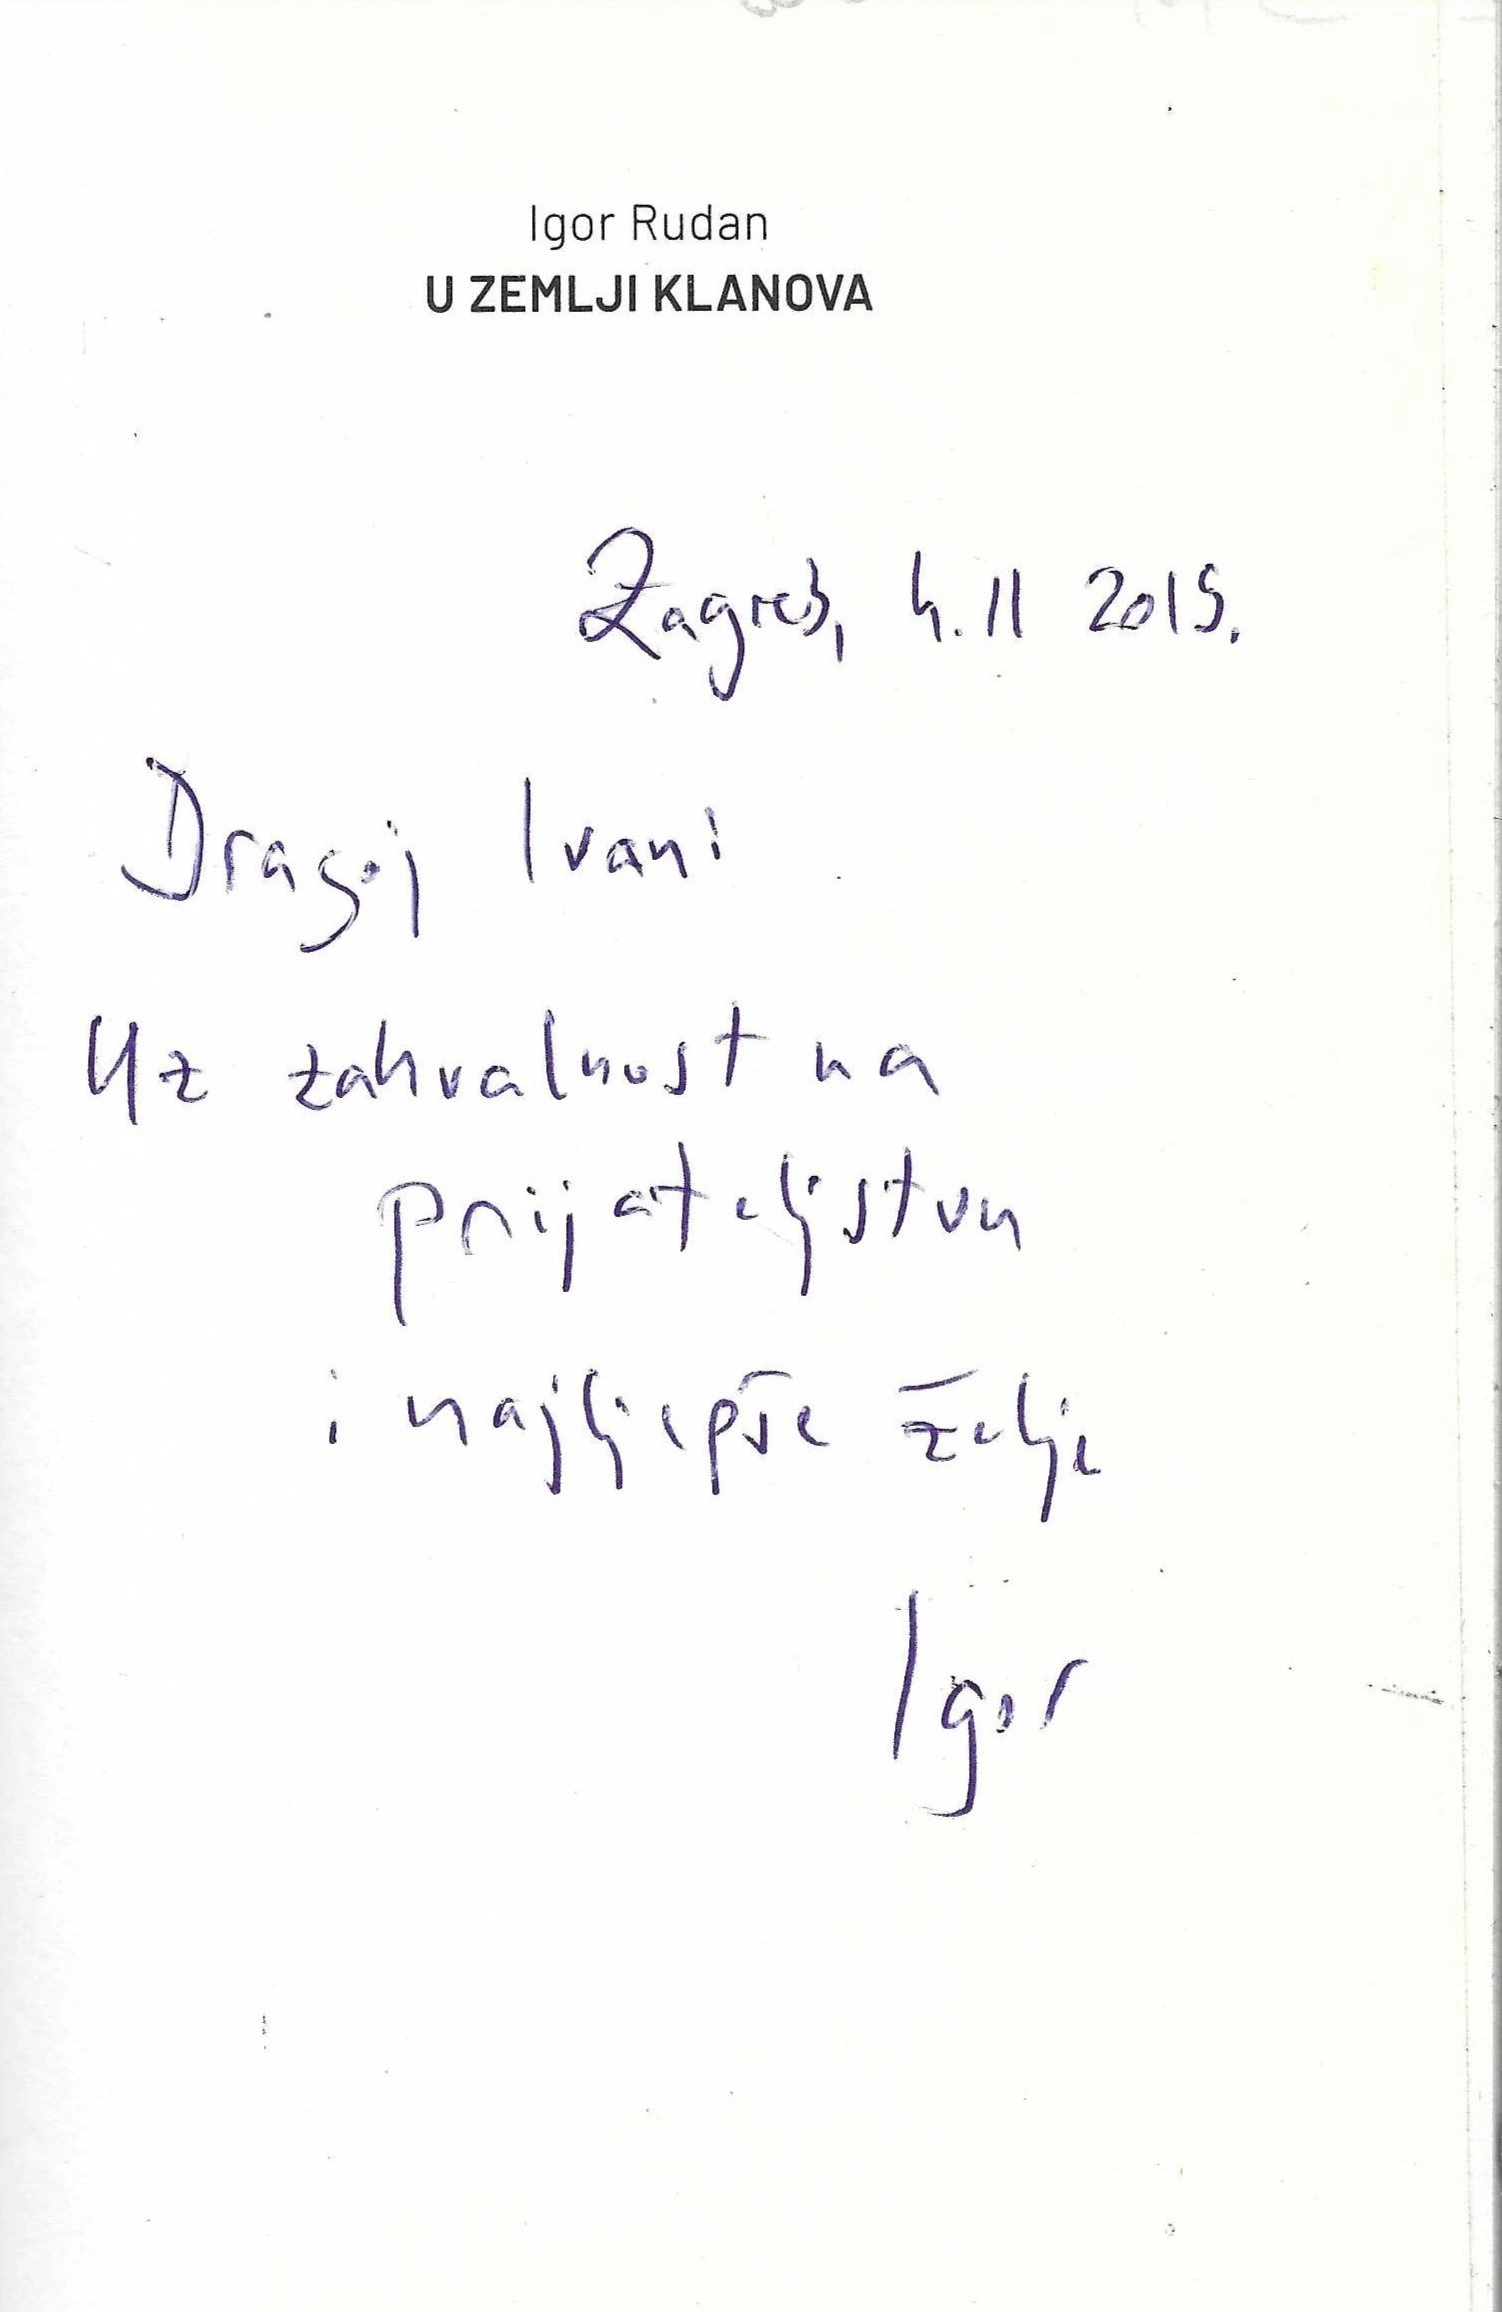 Igor Rudan
U ZEMLJI KLANOVA
Zagreb, 4. 11 2019.
Dragoj Ivani
Uz zahvalnost na
prijateljstvu
i najljepše želje
Igor